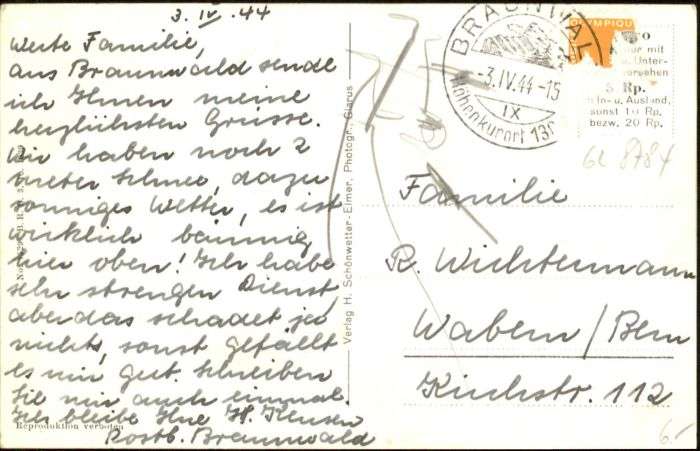 3. IV. 44
Werte Familie,
aus Braunwald sende
ich Ihnen meine
herzlichsten Grüsse.
Wir haben noch 2
meter Schnee, dazu
sonniges Wetter, es ist
wirklich bäumig
hier oben! Ich habe
sehr strengen Dienst,
aber das schadet ja
nichts, sonst gefällt
es mir gut. Schreiben
Sie mir auch einmal.
Ich bleibe Ihre H.
Postb. Braunwald
Reproduktion verboten
Verlag H. Schönwetter-Elmer, Photogr., Glarus
BRAUNWALD
-3.IV.44-15
IX
Höhenkurort
OLYMPIQU
nur mit
Unter-
versehen
5 Rp.
In- u. Ausland,
sonst 10 Rp.
bezw. 20 Rp.
GL 8784
Familie
R. Wichtermann
Wabern / Bern
Kirchstr. 112
6.-